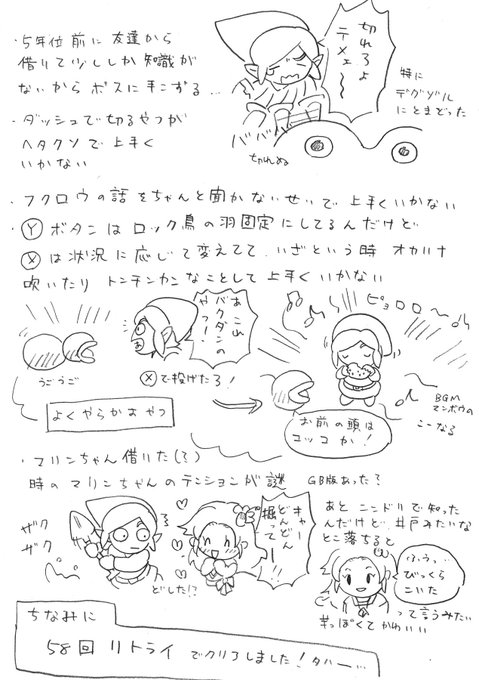 ・5年位前に友達から
借りて少ししか知識が
ないからボスに手こずる…
切れろよ
テメェ〜
特に
デグゾルに
とまどった
・ダッシュで切るやつが
ヘタクソで上手く
いかない
ババババ
切れぬ
・フクロウの話をちゃんと聞かないせいで上手くいかない
・Ⓨボタンはロック鳥の羽固定にしてるんだけど
Ⓧは状況に応じて変えてて、いざという時オカリナ
吹いたりトンチンカンなことして上手くいかない
うごうご
あ、これ
バクダンの
やつー!
Ⓧで投げたろ!
ピョロロ〜♪
BGM
マンボウの
こーなる
お前の頭は
コッコか!
よくやらかすやつ
・マリンちゃん借りた(?)
時のマリンちゃんのテンションが謎 GB版あった?
ザク
ザク
どした!?
キャー
どんどん
掘ってー
あとニンドリで知った
んだけど、井戸みたいな
とこ落ちると
ふぅ、
びっくら
こいた
って言うみたい
芋っぽくてかわいい
ちなみに
58回リトライでクリアしました!タハー…